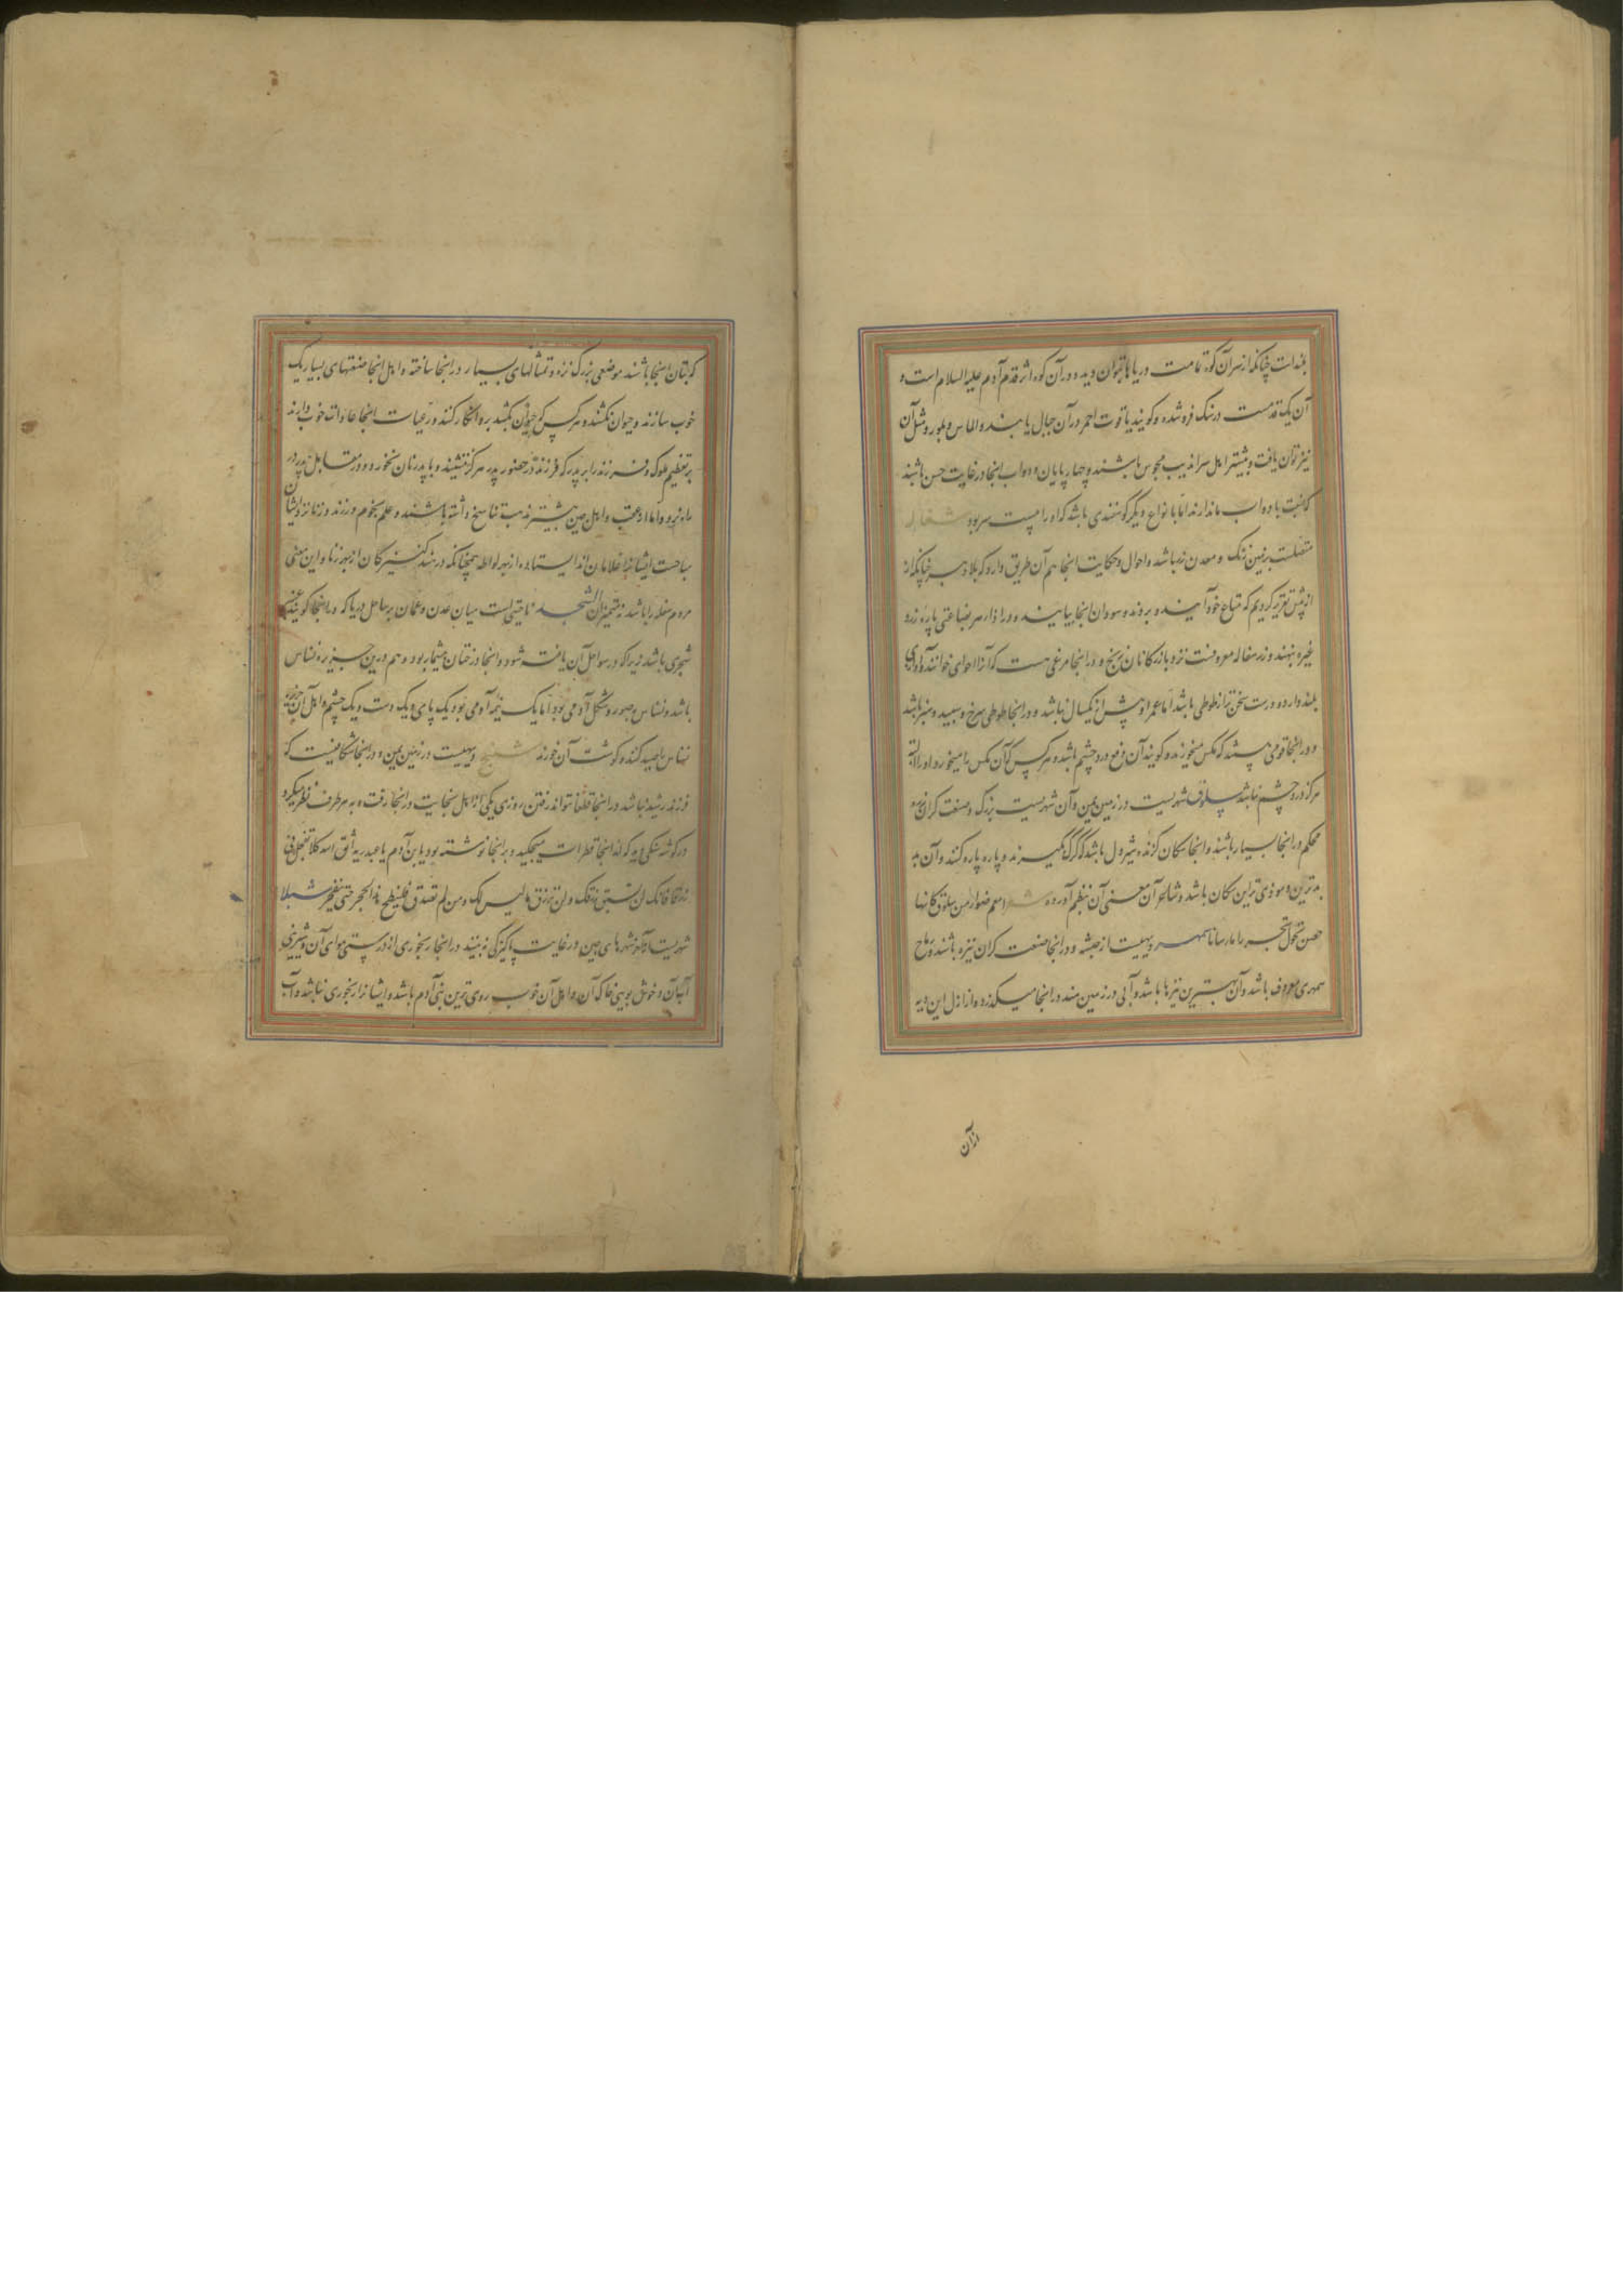 بلندست چنانکه از سر آن کوه تمامت دریاها بتوان دید و در آن کوه اثر قدم آدم علیه السلام است و
آن یک قدمست در سنک فروشده و کویند یاقوت احمر در آن جبال یابند و الماس و بلور و مثل آن
نیز توان یافت و بیشتر اهل سراندیب مجوس باشند و چهارپایان و دواب انجا در غایت حسن باشند
که بدواب ما ندارند اما با نواع دیگر کوسفندی باشد که او را سرود
متصلست بزمین زنک و معدن زر باشد و احوال و حکایت انجا هم آن طریق دارد که بلاد چنانکه از
از پیش تقریر کردیم که متاع خود آنند و بروند و سودان انجا بیایند و در ازا هر بضاعتی پاره زر و
غیره بنهند و زر سفاله معروفست نزد بازرکانان زنج و در انجا مرغی هست که آنرا حوای خوانند آوازی
بلند دارد و درست سخن تر از طوطی باشد اما عمر او بیش از یکسال نباشد و در انجا طوطی سرخ و سپید و سبز باشد
و در انجا قومی هستند که مکس میخورند و کویند آن دفع درد چشم باشد و هر کس که آن مکس را میخورد او را البته
هرکز درد چشم نباشد سلوق شهریست در زمین یمن و آن شهریست بزرک و صنعت کران زره
محکم در انجا بسیار باشند و انجا سکان کزنده شیردل باشد که کرک بگیرند و پاره پاره کنند و آن
بدترین و موذی ترین سکان باشد و شاعر آن معنی آن بنظم آورده شعر منهم ضوار من سلوق کانها
حصن تجول تجرر ارسانا سمهر دیهیست از حبشه و در انجا صنعت کران نیزه باشند و رماح
سمهری معروف باشد و آن بهترین نیزها باشد و آبی در زمین هند در انجا میکذرد و از اول این دیه
از آن
که بتان انجا باشند موضعی بزرک نزه و تمثالهای بسیار در انجا ساخته و اهل انجا صنعتهای بسیار نیک
خوب سازند و حیوان نکشند و هر کس که حیوان بکشد برو انکار کنند و رعیات انجا عادات خوب دارند
بر تعظیم ملوک و فرزند را بر پدر که فرزند در حضور پدر هرکز ننشیند و با پدر نان نخورد و در مقابل پدر
راه نرود و اما از عقب و اهل چین بیشتر مذهب تناسخ داشته باشند و علم نجوم ورزند و زنا نزد ایشان
مباحست ایشانرا غلامان اند ایستاده از بهر لواطه همچنانکه در هند کنیزکان از بهر زنا و این معنی
مردم سفله را باشد نه متمیزان الشحر ناحیتی است میان عدن و عمان بر ساحل دریا که در انجا کویند عنبر
شحری باشد زیرا که در سواحل آن یافته شود و انجا درختان بیشمار بود و هم درین جزیره نسناس
باشد و نسناس بصورت و شکل آدمی بود اما یک نیمه آدمی بود یک پای و یک دست و یک چشم و اهل آن جزیره
نسناس را صید کنند و کوشت آن خورند دیهیست در زمین یمن و در انجا شکافیست که
فرزند رشید نباشد در انجا قطعا نتواند رفتن روزی یکی از اهل نجابت در انجا رفت و به هر طرف نظر میکرد
در کوشه سنکی دید که از انجا قطرات میچکید و بر انجا نوشته بود یا بن آدم یا عبد ربه اتق الله کلا تعجل فی
رزقک فانک لن تسبق رزقک و لن ترزق ما لیس لک و من لم یصدق فلینطح هذا الحجر حتی ینفجر شیلا
شهریست از آخر شهرهای چین در غایت پاکیزکی نبینند در انجا رنجوری از درستی هوای آن و شیرینی
آبهان و خوش بویی خاک آن و اهل آن خوب روی ترین بنی آدم باشد و ایشانرا رنجوری نباشد و آب